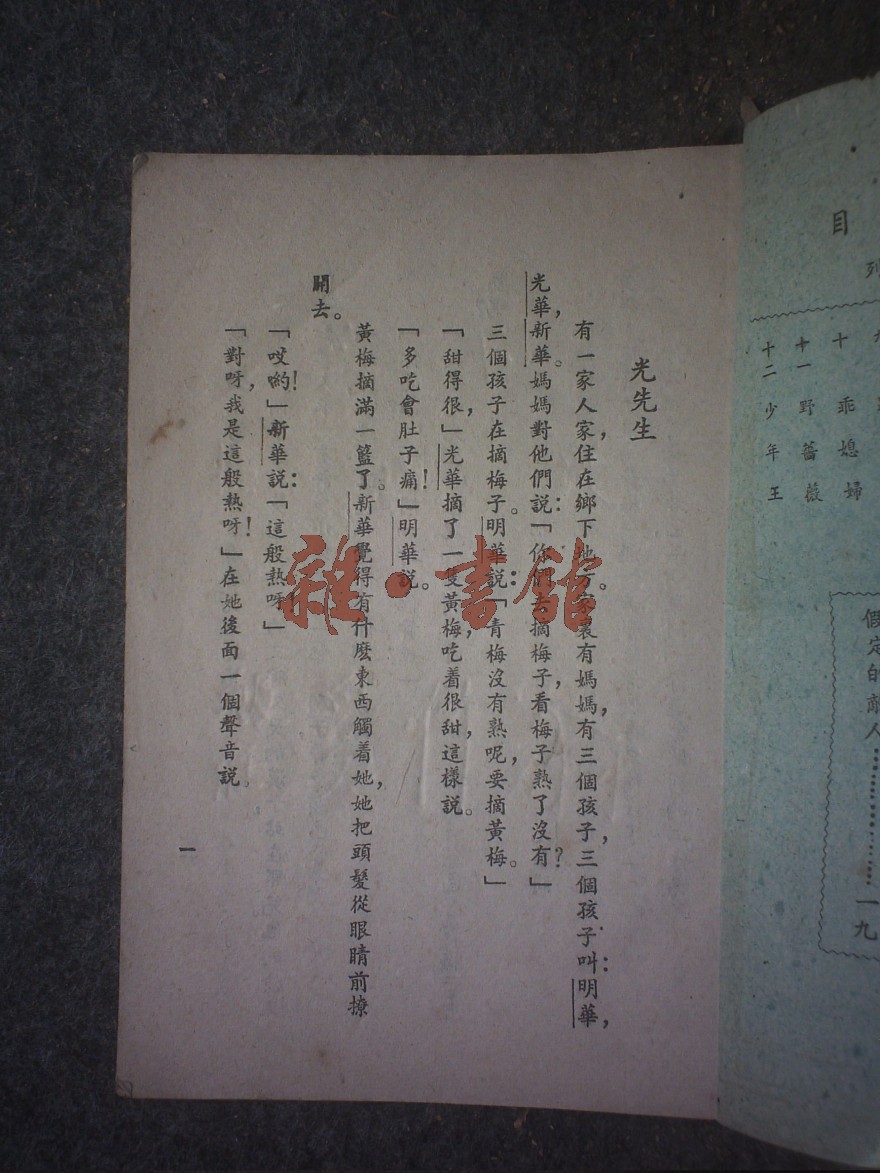 目
列
十 乖媳婦
十一 野薔薇
十二 少年王
假定的敵人…………一九
光先生
有一家人家，住在鄉下地方。家裏有媽媽，有三個孩子，三個孩子叫：明華，
光華，新華。媽媽對他們說：「你們去摘梅子，看梅子熟了沒有？」
三個孩子在摘梅子。明華說：「青梅沒有熟呢，要摘黃梅。」
「甜得很，」光華摘了一隻黃梅，吃着很甜，這樣說。
「多吃會肚子痛！」明華說。
黃梅摘滿一籃了。新華覺得有什麽東西觸着她，她把頭髮從眼睛前撩
開去。
「哎喲！」新華說：「這般熱呀！」
「對呀，我是這般熱呀！」在她後面一個聲音說。
一
雜·書館